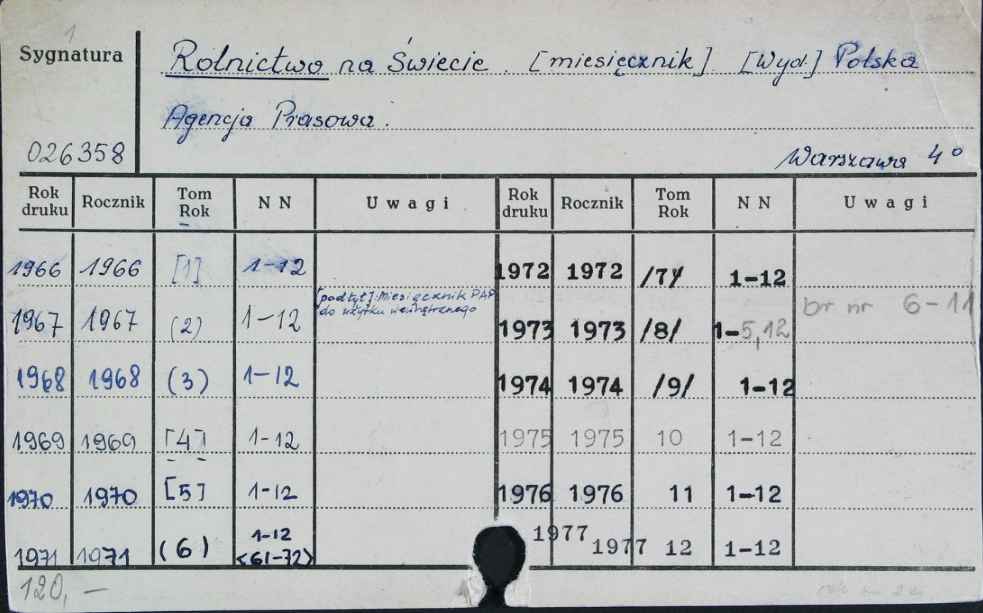 1
Sygnatura
Rolnictwo na Świecie. [miesięcznik]. [Wyd.] Polska
Agencja Prasowa.
026358
Warszawa 4°
Rok druku Rocznik Tom Rok N N Uwagi Rok druku Rocznik Tom Rok N N Uwagi
1966 1966 [1] 1-12 1972 1972 /7/ 1-12
[podtyt.] Miesięcznik PAP
do użytku wewnętrznego
1967 1967 (2) 1-12 1973 1973 /8/ 1-5,12 br nr 6-11
1968 1968 (3) 1-12 1974 1974 /9/ 1-12
1969 1969 [4] 1-12 1975 1975 10 1-12
1970 1970 [5] 1-12 1976 1976 11 1-12
1971 1971 (6) 1-12 <61-72> 1977 1977 12 1-12
120,—